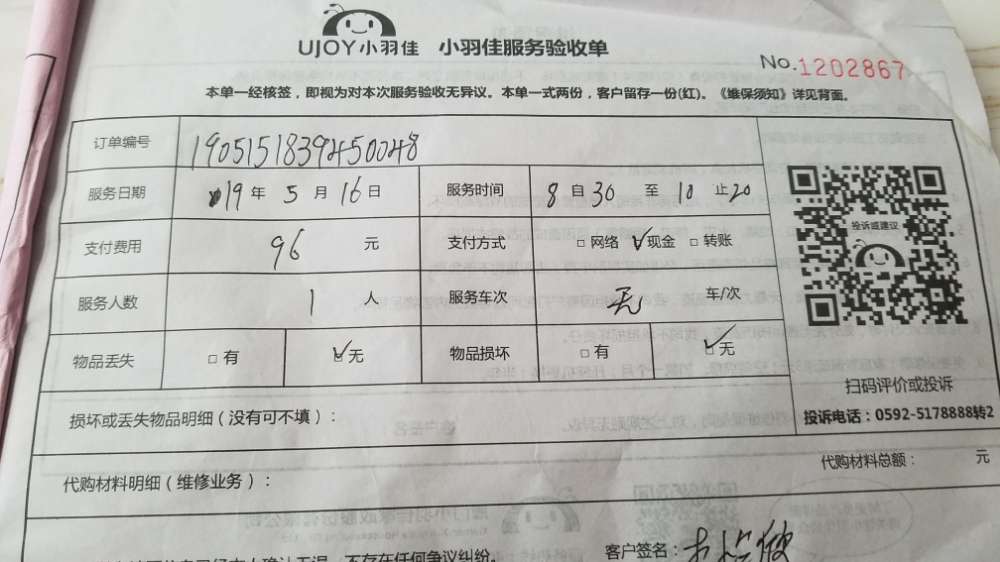 UJOY小羽佳 小羽佳服务验收单
No.1202867
本单一经核签，即视为对本次服务验收无异议。本单一式两份，客户留存一份(红)。《维保须知》详见背面。
订单编号 1905151839450048
服务日期 19 年 5 月 16 日 服务时间 8 自 30 至 10 止 20
支付费用 96 元 支付方式 □ 网络 ☑现金 □ 转账
投诉或建议
服务人数 1 人 服务车次 无 车/次
物品丢失 □ 有 ☑无 物品损坏 □ 有 ☑无
扫码评价或投诉
投诉电话：0592-5178888转2
损坏或丢失物品明细（没有可不填）：
代购材料明细（维修业务）： 代购材料总额： 元
确认无误，不存在任何争议纠纷。
客户签名：